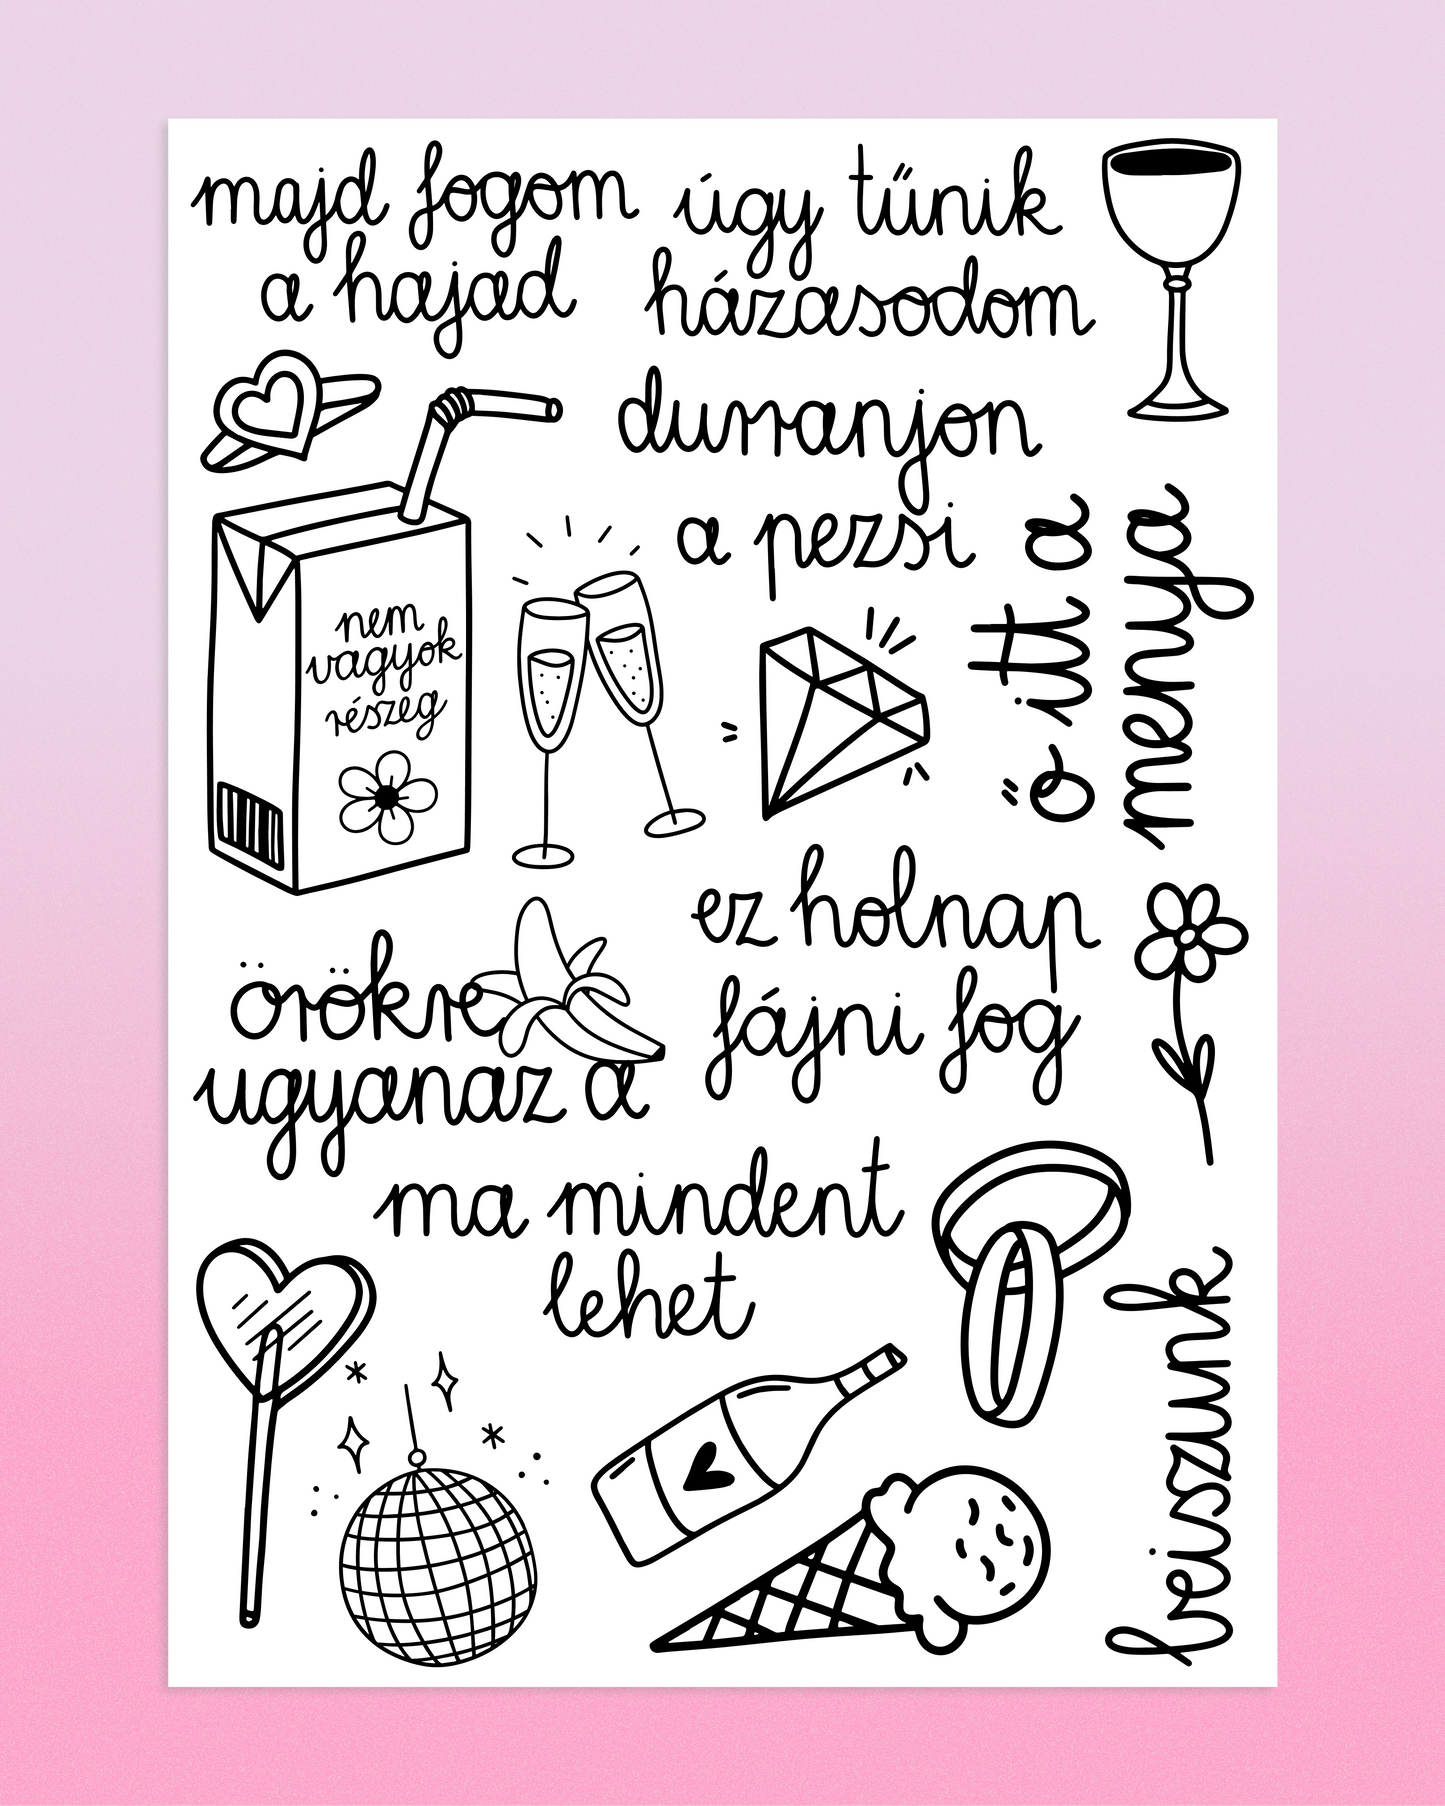 majd fogom
a hajad
úgy tűnik
házasodom
durranjon
a pezsi
ő itt a
menya
nem
vagyok
részeg
ez holnap
fájni fog
örökre
ugyanaz a
ma mindent
lehet
beiszunk